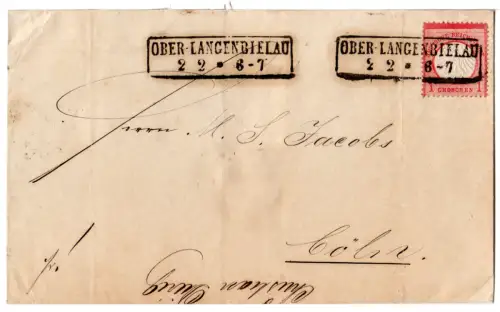 OBER-LANGENBIELAU
2 2 * 6-7
OBER-LANGENBIELAU
2 2 * 6-7
1 GROSCHEN 1
Herrn M. S. Jacobs
Cöln.
Christian Dierig